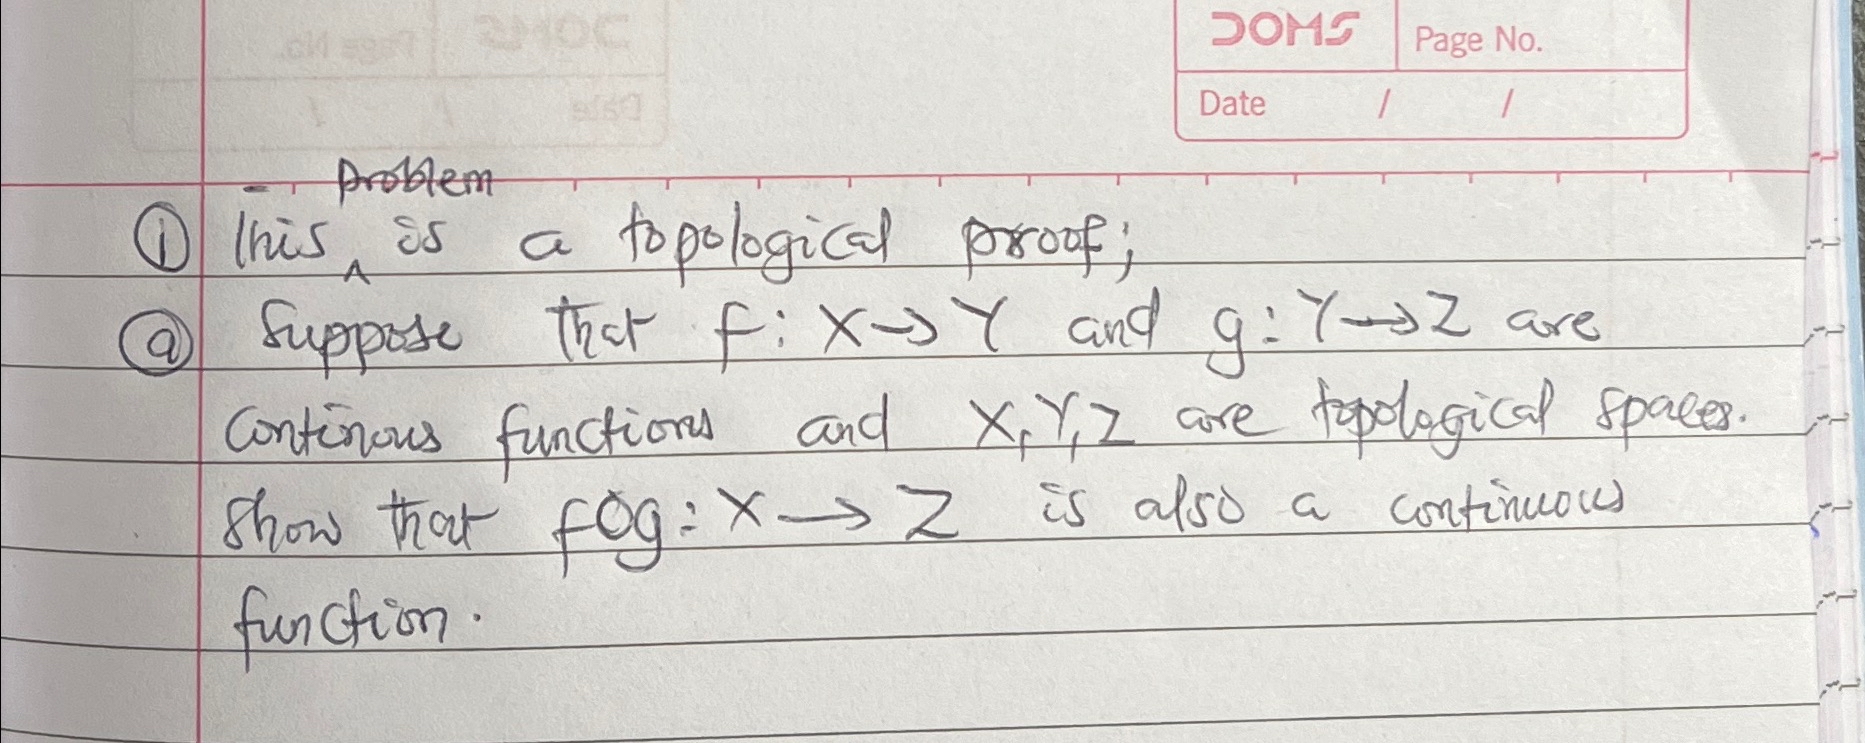 DOMS
Page No.
Date / /
problem
① This ^ is a topological proof;
ⓐ Suppose that f: X→Y and g: Y→Z are
continous functions and X,Y,Z are topological spaces.
Show that fog: X→Z is also a continuous
function.